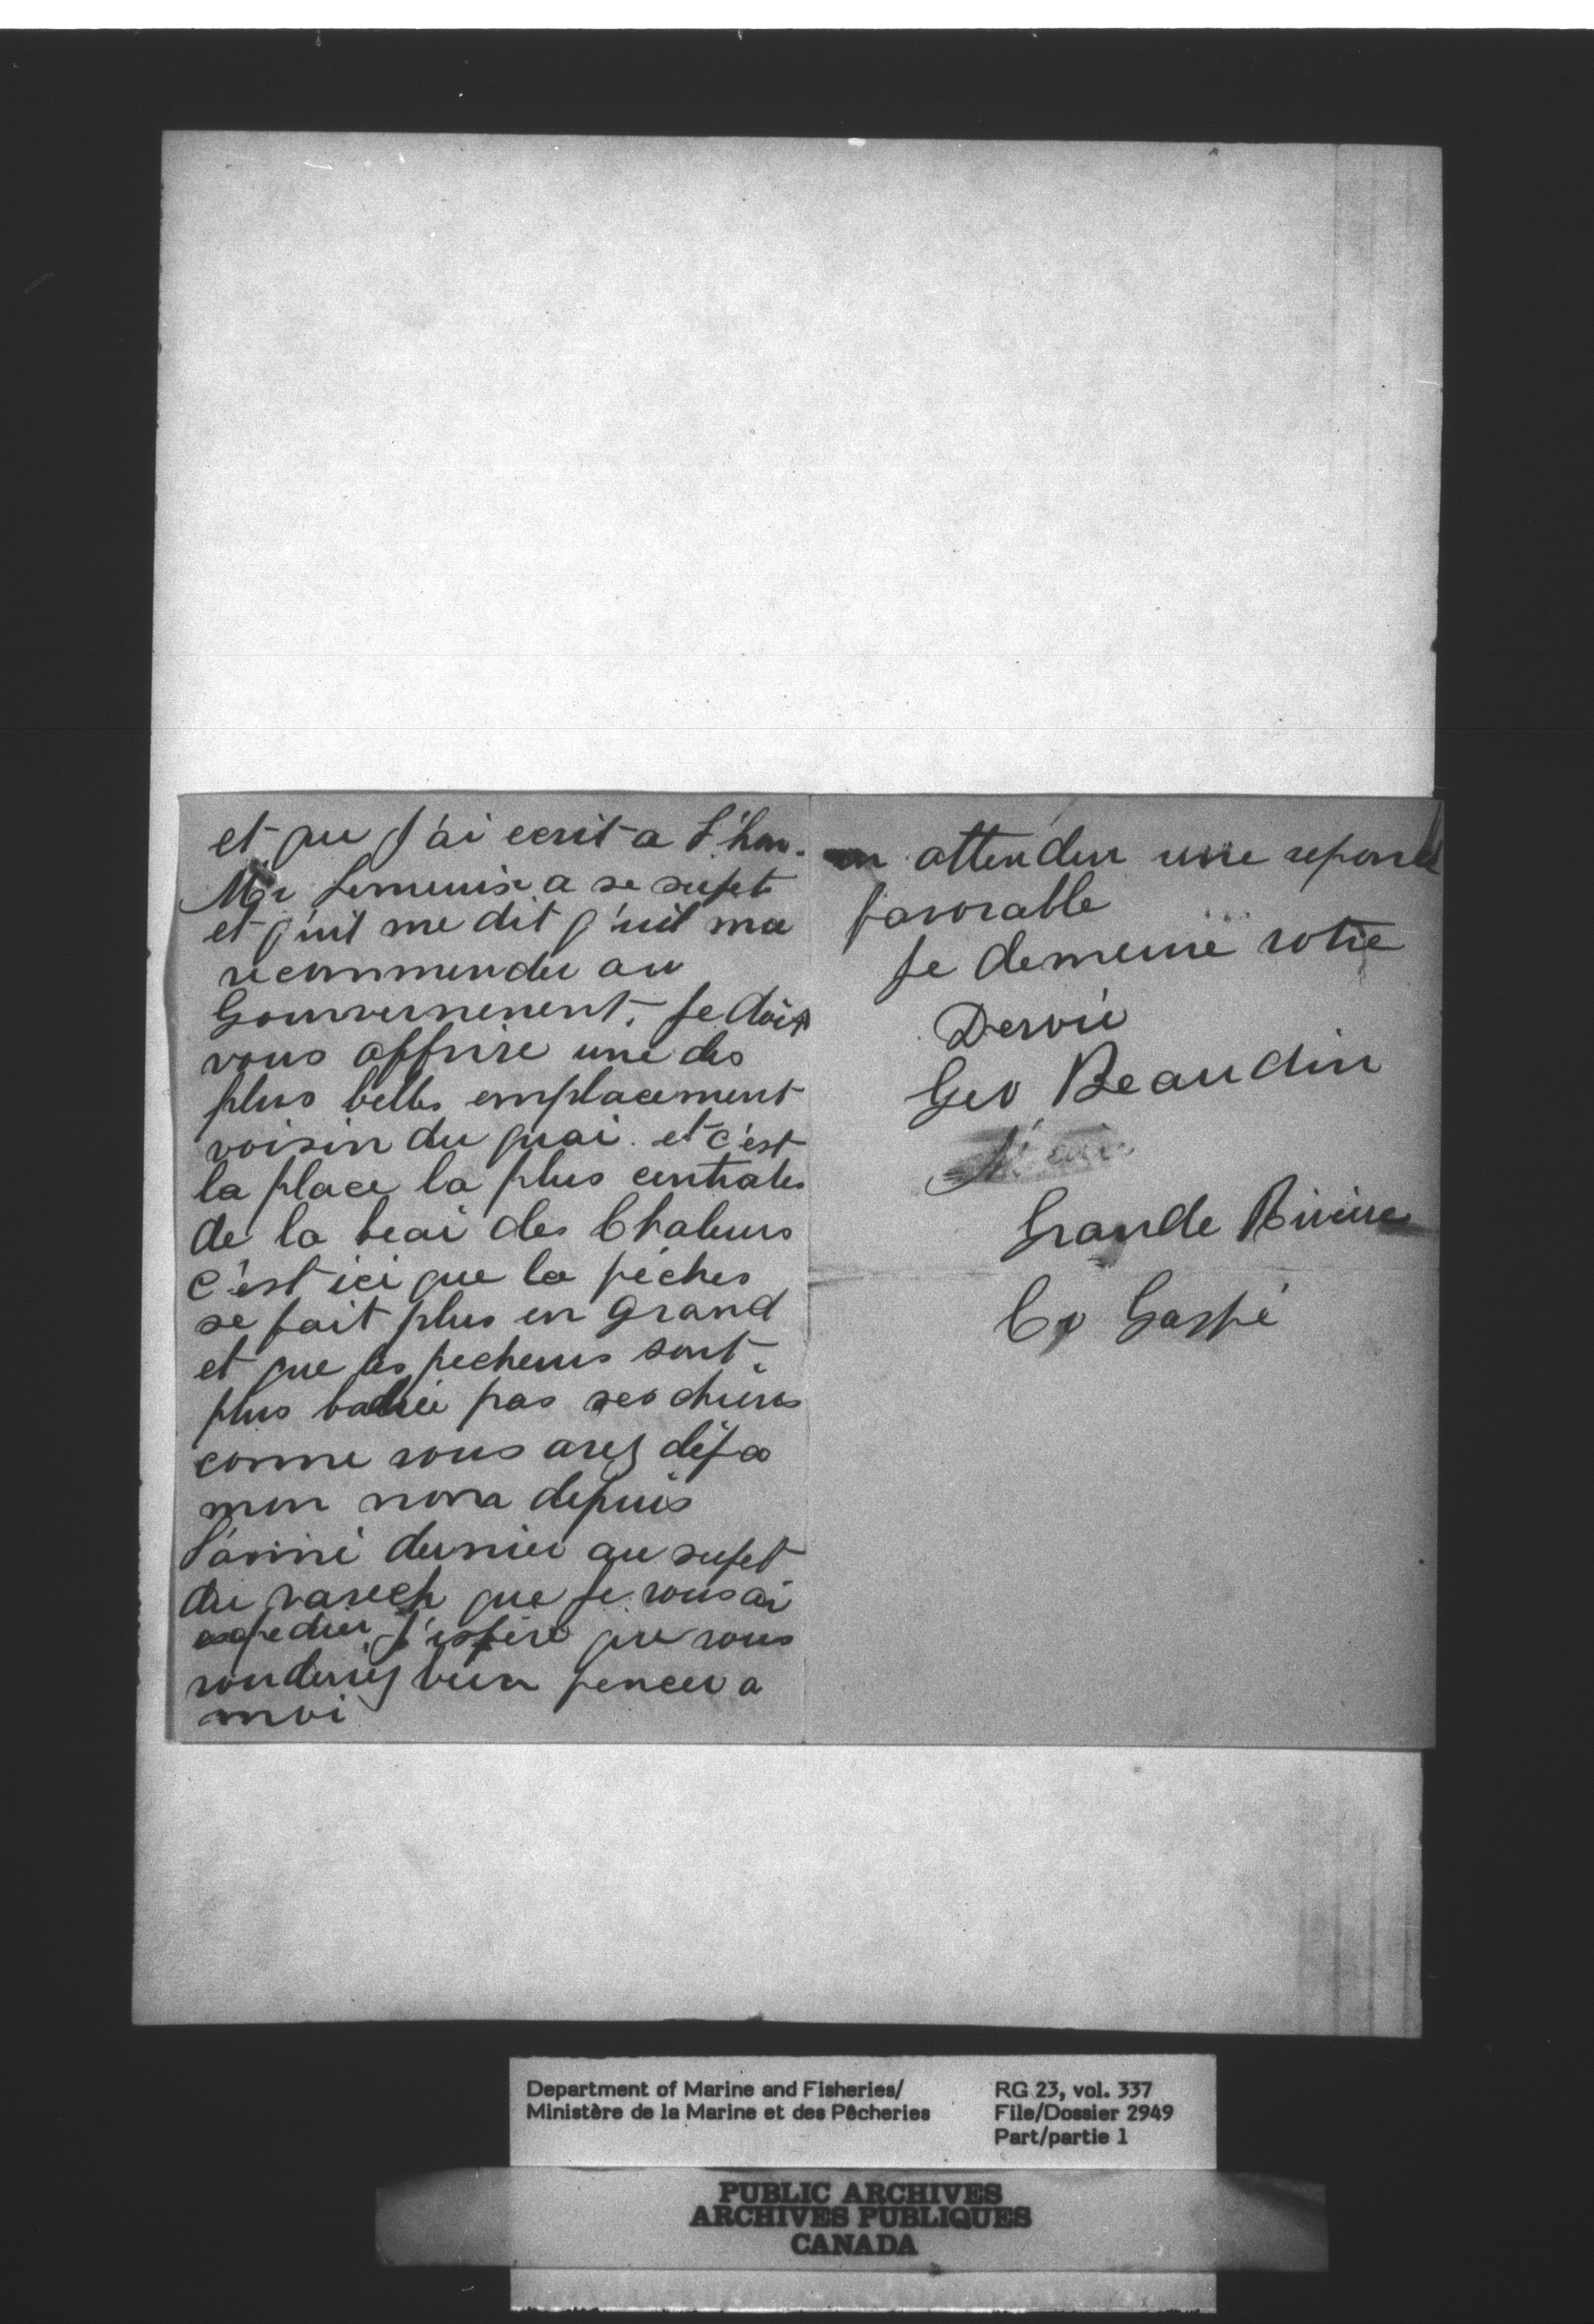 et que J'ai ecrit a l'hon.
Mr Lemieux a se sujet
et q'uil me dit q'uil ma
recommender au
Gouvernement. Je dois
vous offrire une des
plus belles emplacement
voisin du quai. et c'est
la place la plus centrales
de la beai des Chaleurs
c'est ici que la pêches
se fait plus en grand
et que les pecheurs sont
plus pas
comme vous avez déja
mon nom depuis
l'anné dernier au sujet
du varech que Je vous ai
expedier. J'espere que vous
vouderiez bien pencer a
moi
en attenden une reponse
favorable
Je demeure votre
Dervoué
Geo Beaudin
Grande Riviere
Co Gaspé
Department of Marine and Fisheries/
Ministère de la Marine et des Pêcheries
RG 23, vol. 337
File/Dossier 2949
Part/partie 1
PUBLIC ARCHIVES
ARCHIVES PUBLIQUES
CANADA